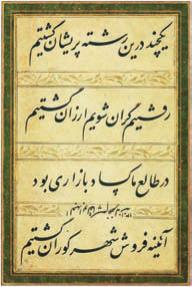 یکچند درین رشته پریشان گشتیم
رفتیم گران شویم ارزان گشتیم
در طالع ما کساد بازاری بود
آئینه فروش شهر کوران گشتیم